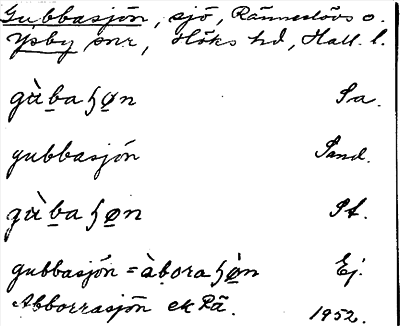 Gubbasjön, sjö, Ränneslövs o.
Ysby snr, Höks hd, Hall. l.
gùbaɧøn Sa.
gubbasjön Sand.
gùbaɧøn St.
gubbasjön = àboraɧø̀n Ej.
Abborrasjön ek Rä. 1952.